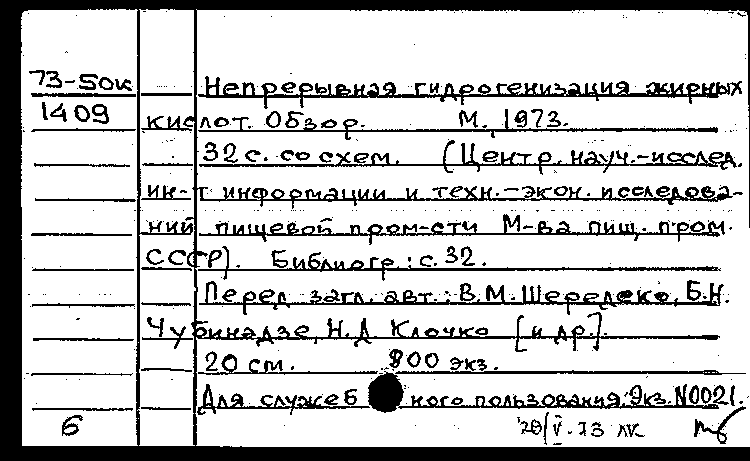 73-50к
1409
Непрерывная гидрогенизация жирных
кислот. Обзор. М., 1973.
32 с. со схем. (Центр. науч.-исслед.
ин-т информации и техн.-экон. исследова-
ний пищевой пром-сти М-ва пищ. пром.
СССР). Библиогр.: с. 32.
Перед загл. авт.: В.М. Шередеко, Б.Н.
Чубинидзе, Н.Д. Клочко [и др.].
20 см. 800 экз.
Для служебного пользования. Экз. N0021.
6
28/V-73